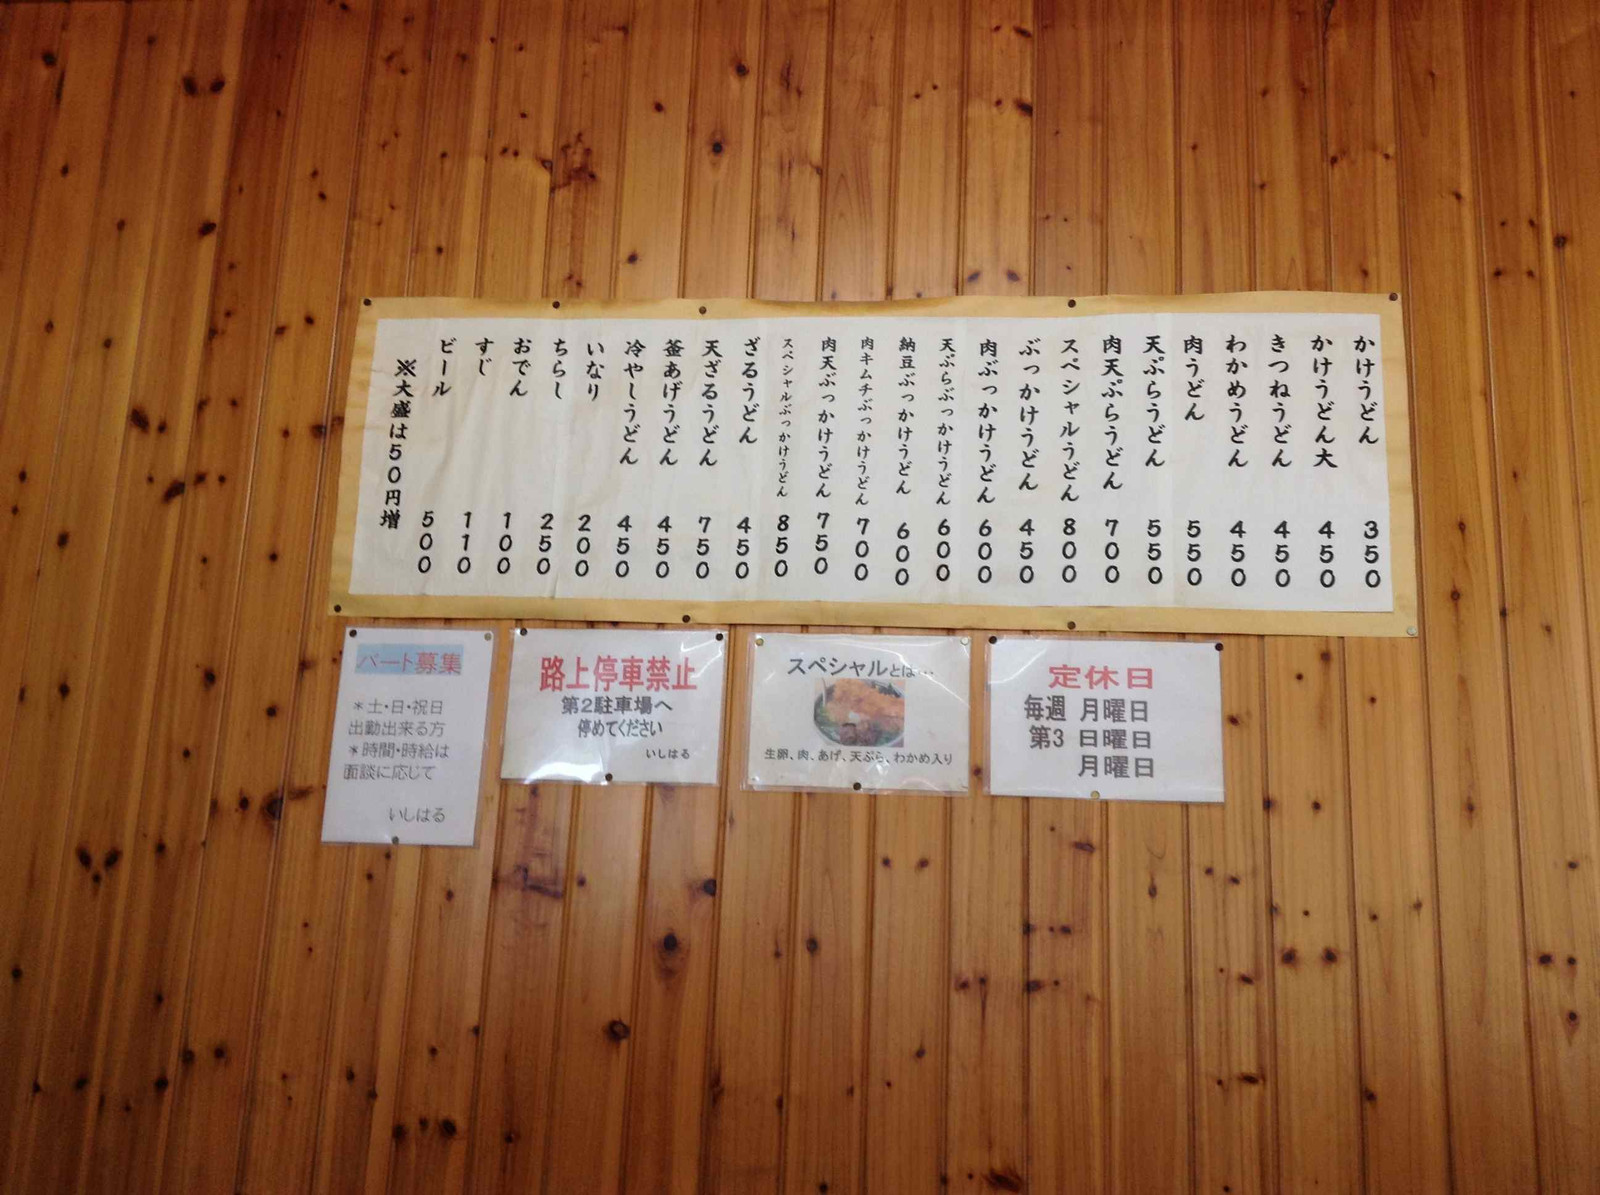 かけうどん 350
かけうどん大 450
きつねうどん 450
わかめうどん 450
肉うどん 550
天ぷらうどん 550
肉天ぷらうどん 700
スペシャルうどん 800
ぶっかけうどん 450
肉ぶっかけうどん 600
天ぷらぶっかけうどん 600
納豆ぶっかけうどん 600
肉キムチぶっかけうどん 700
肉天ぶっかけうどん 750
スペシャルぶっかけうどん 850
ざるうどん 450
天ざるうどん 750
釜あげうどん 450
冷やしうどん 450
いなり 200
ちらし 250
おでん 100
すじ 110
ビール 500
※大盛は50円増
パート募集
＊土・日・祝日
出勤出来る方
＊時間・時給は
面談に応じて
いしはる
路上停車禁止
第2駐車場へ
停めてください
いしはる
スペシャルとは…
生卵、肉、あげ、天ぷら、わかめ入り
定休日
毎週 月曜日
第3 日曜日
月曜日